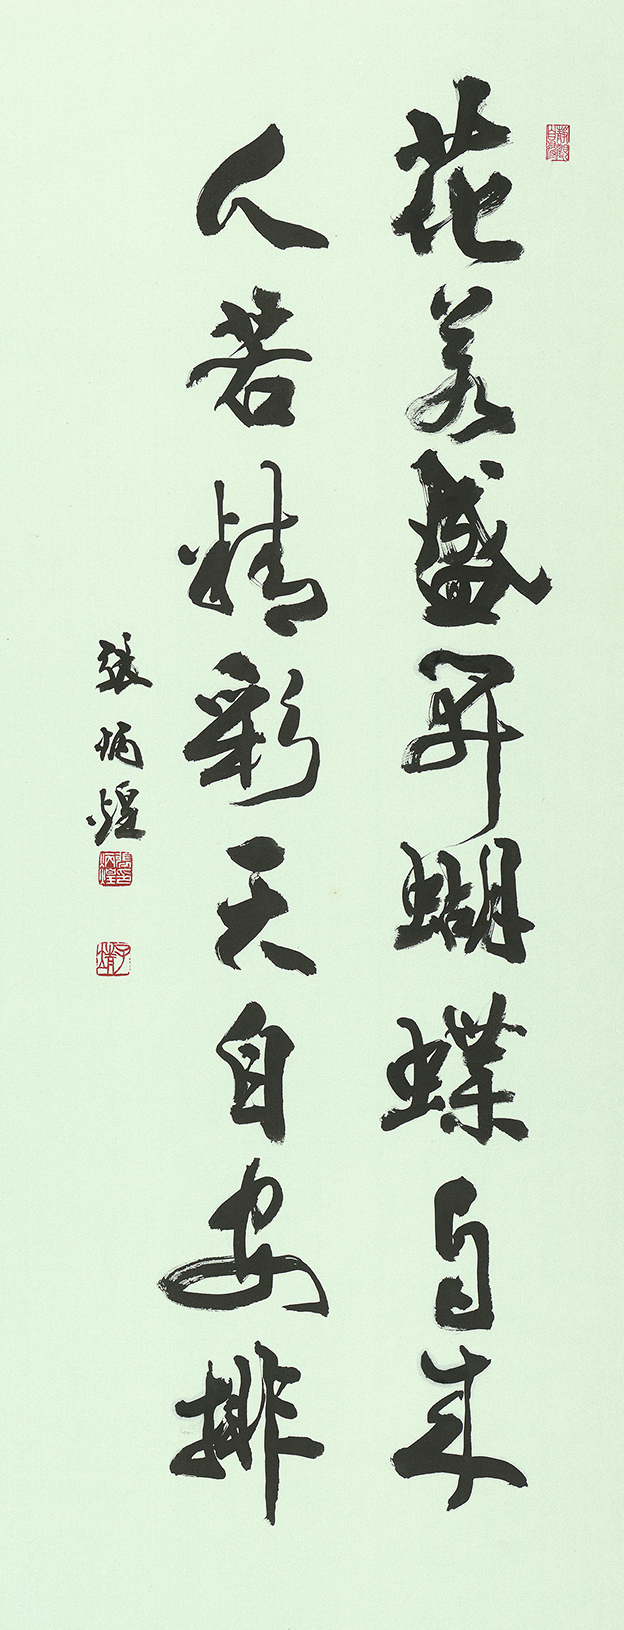 花若盛開蝴蝶自來
人若精彩天自安排
張炳煌